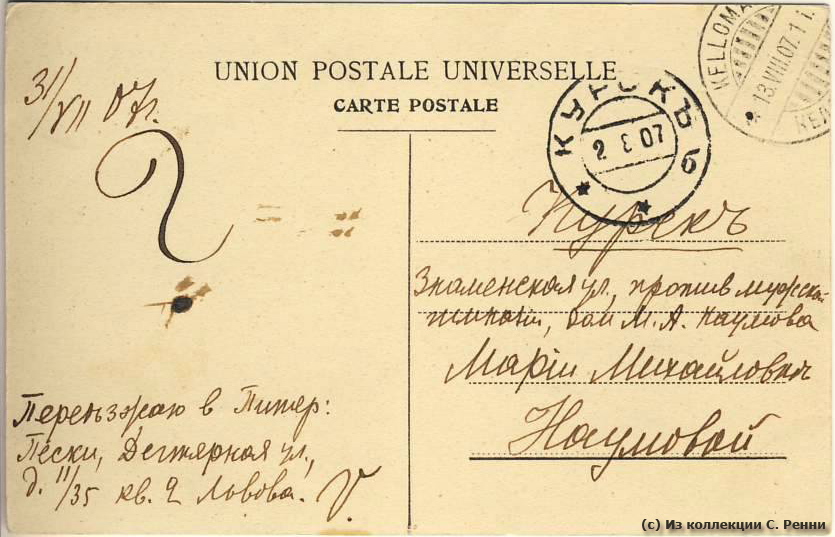 UNION POSTALE UNIVERSELLE
CARTE POSTALE
KELLOMÄ
* 13.VIII.07. 1 i.
КЕЛ
КУРСКЪ
2 8 07
б
31/VII 07г.
?
Переѣзжаю в Питер:
Пески, Дегтярная ул.,
д. 11/35 кв. 2 Львова. V.
Курскъ
Знаменская ул., против мужской
гимназии, дом М. А. Наумова
Маріи Михайловнѣ
Наумовой
(c) Из коллекции С. Ренни